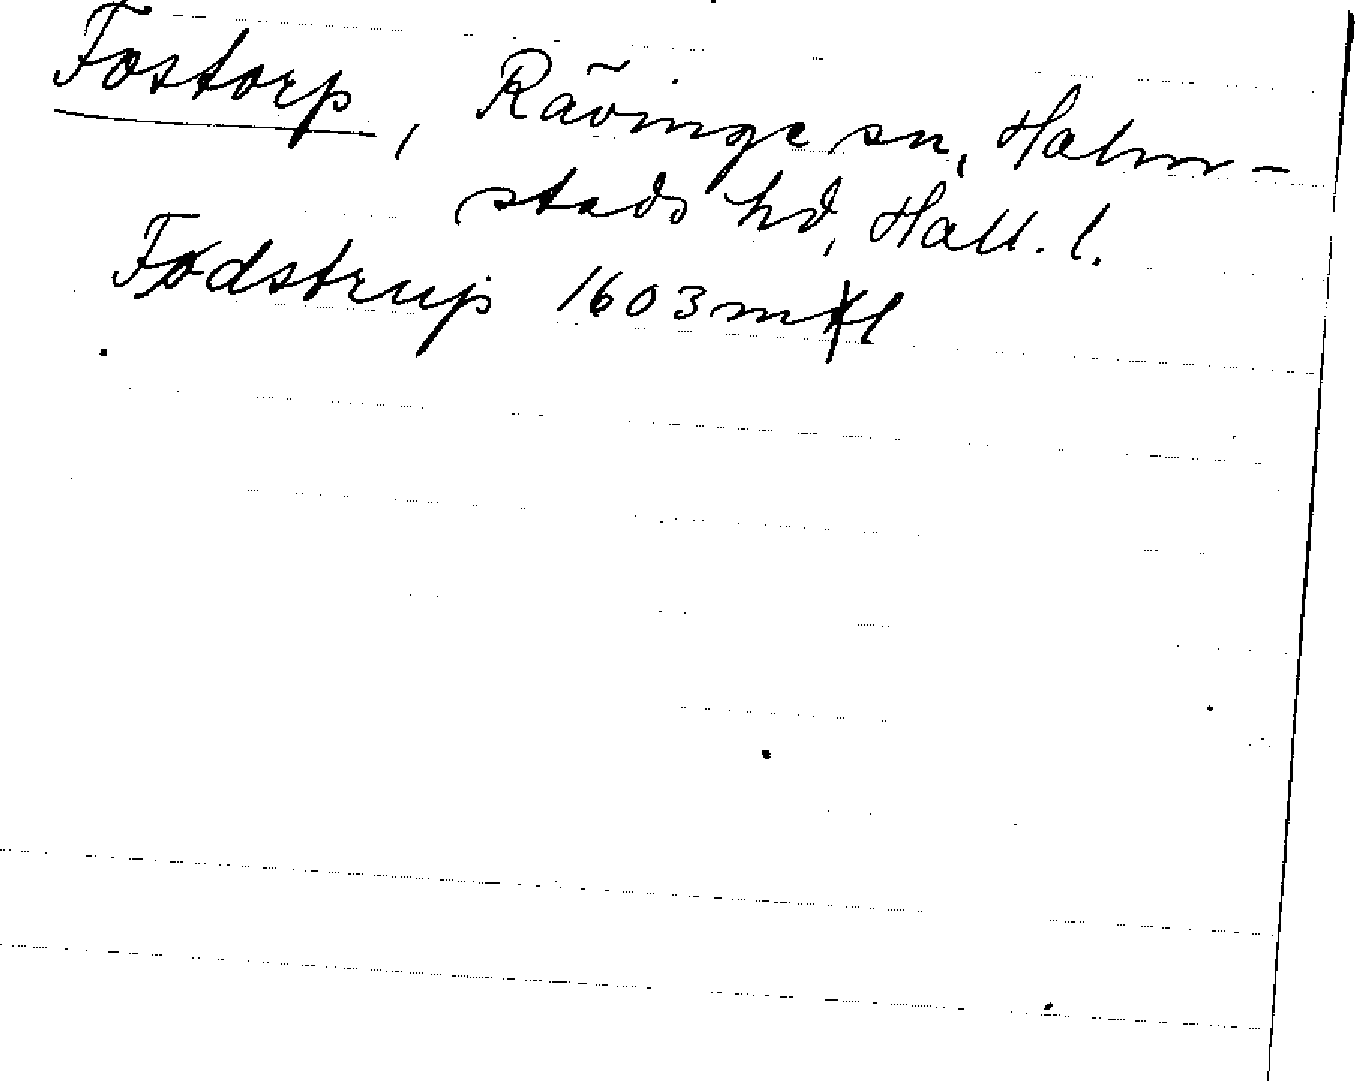 Fostorp, Rävinge sn, Halm-
stads hd, Hall. l.
Fødstrup 1603